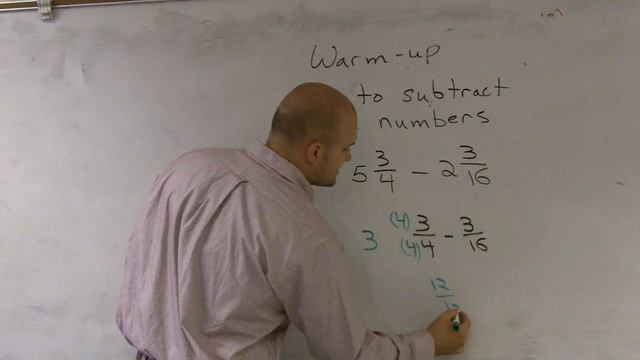 Warm-up
to subtract
numbers
5 3/4 - 2 3/16
3 (4)3/(4)4 - 3/16
12/